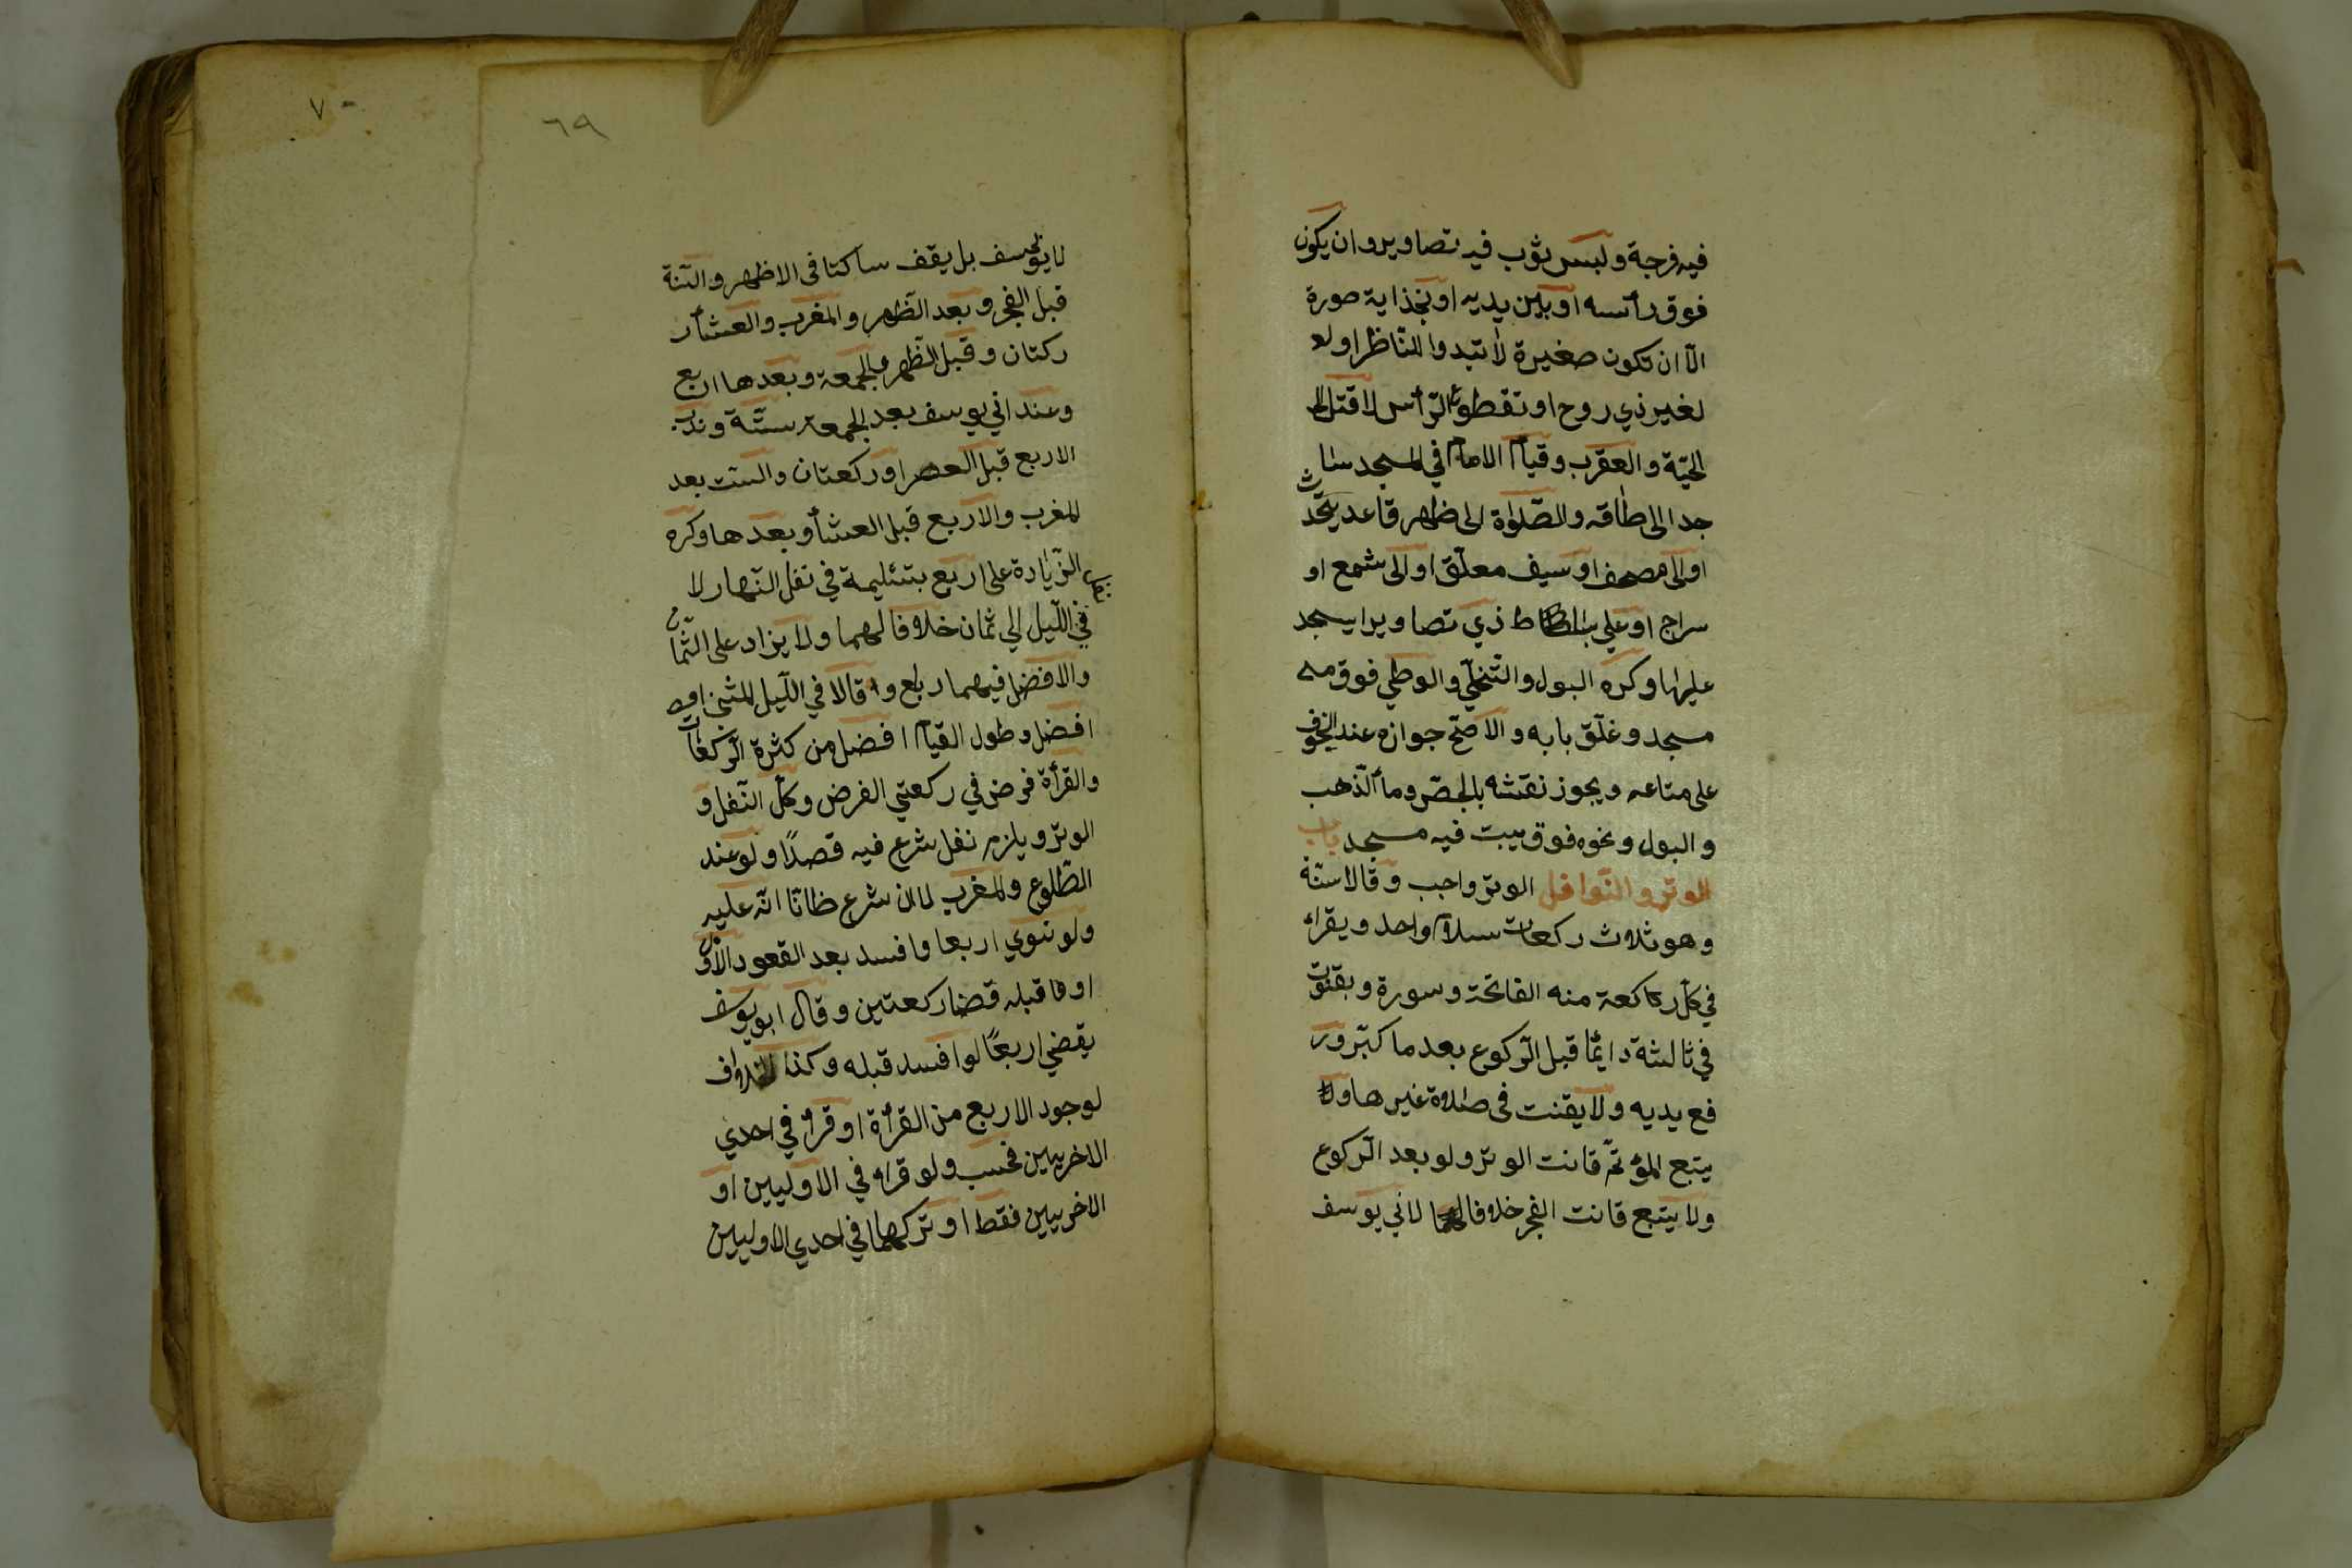 فيه فرجة ولبس ثوب فيه تصاوير وان يكون
فوق رأسه او بين يديه او بخذاية صورة
الّا ان تكون صغيرة لا تبدوا للنّاظر او
لغير ذي روح او تقطوع الرّأس لا قتل
الحيّة والعقرب وقيام الامام في المسجد سا
جدا الى طاقه والصّلواة الى ظهر قاعد يتحّدث
او الى مصحف او سيف معلّق او الى شمع او
سراج او على بساط ذي تصاوير ا يسجد
عليها وكره البول والتّخلّي والوطي فوق
مسجد وغلّق بابه والاصحّ جوازه عند الخوف
على متاعه ويجوز نقشه بالجصّ ومآ الذّهب
والبول ونحوه فوق بيت فيه مسجد باب
الوتر والنّوافل الوتر واجب وقالا سنّة
وهو ثلاث ركعات سلام واحد ويقراء
في كلّ ركعة منه الفاتحة وسورة ويقنوت
في ثالثة دائمًا قبل الرّكوع بعد ما كبّر ور
فع يديه ولا يقنت فى صلاة غيرها ولا
يتبع المؤتمّ قانت الوتر ولو بعد الرّكوع
ولا يتبع قانت الفجر خلافا لابي يوسف
٦٩
٧٠
لايو سف بل يقف ساكتا فى الاظهر والسّنة
قبل الفجر وبعد الظّهر والمغرب والعشآ ر
ركتان وقبل الظّهر والجمعة وبعدها اربع
وعند ابي يوسف بعد الجمعة ستّة وندب
الاربع قبل العصر او ركعتان والستت بعد
المغرب والاربع قبل العشآ وبعدها وكره
الزّيادة على اربع بتسليمة في نفل النّهار لا
في اللّيل الي ثمان خلافا لهما ولا يزاد على الثّمان
والافضل فيهما رباع وقالا في اللّيل المثنى
افضل وطول القيام افضل من كثرة الرّكعات
والقرأة فرض في ركعتي الفرض وكلّ النّفل و
الوتر ويلزم نفل شرع فيه قصدًا ولو عند
الطّلوع والمغرب لا ان شرع ظانّا انّه عليه
ولو نوي اربعا وافسد بعد القعود الاوّل
او قبله قضا ركعتين وقال ابو يوسف
يقضي اربعًا لوا فسد قبله وكذا الخلاف
لوجود الاربع من القرأة او قرأ في احدي
الاخريين فحسب ولو قراء في الاوليين او
الاخريين فقط او تركها في احدي الاوليين